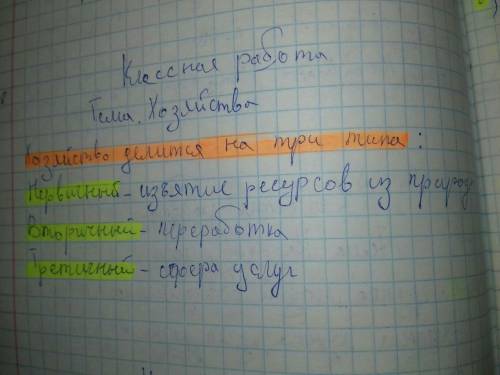 Классная работа
Тема. Хозяйства
Хозяйство делится на три типа:
Первичный - изъятие ресурсов из природ
Вторичный - переработка
Третичный - сфера услуг